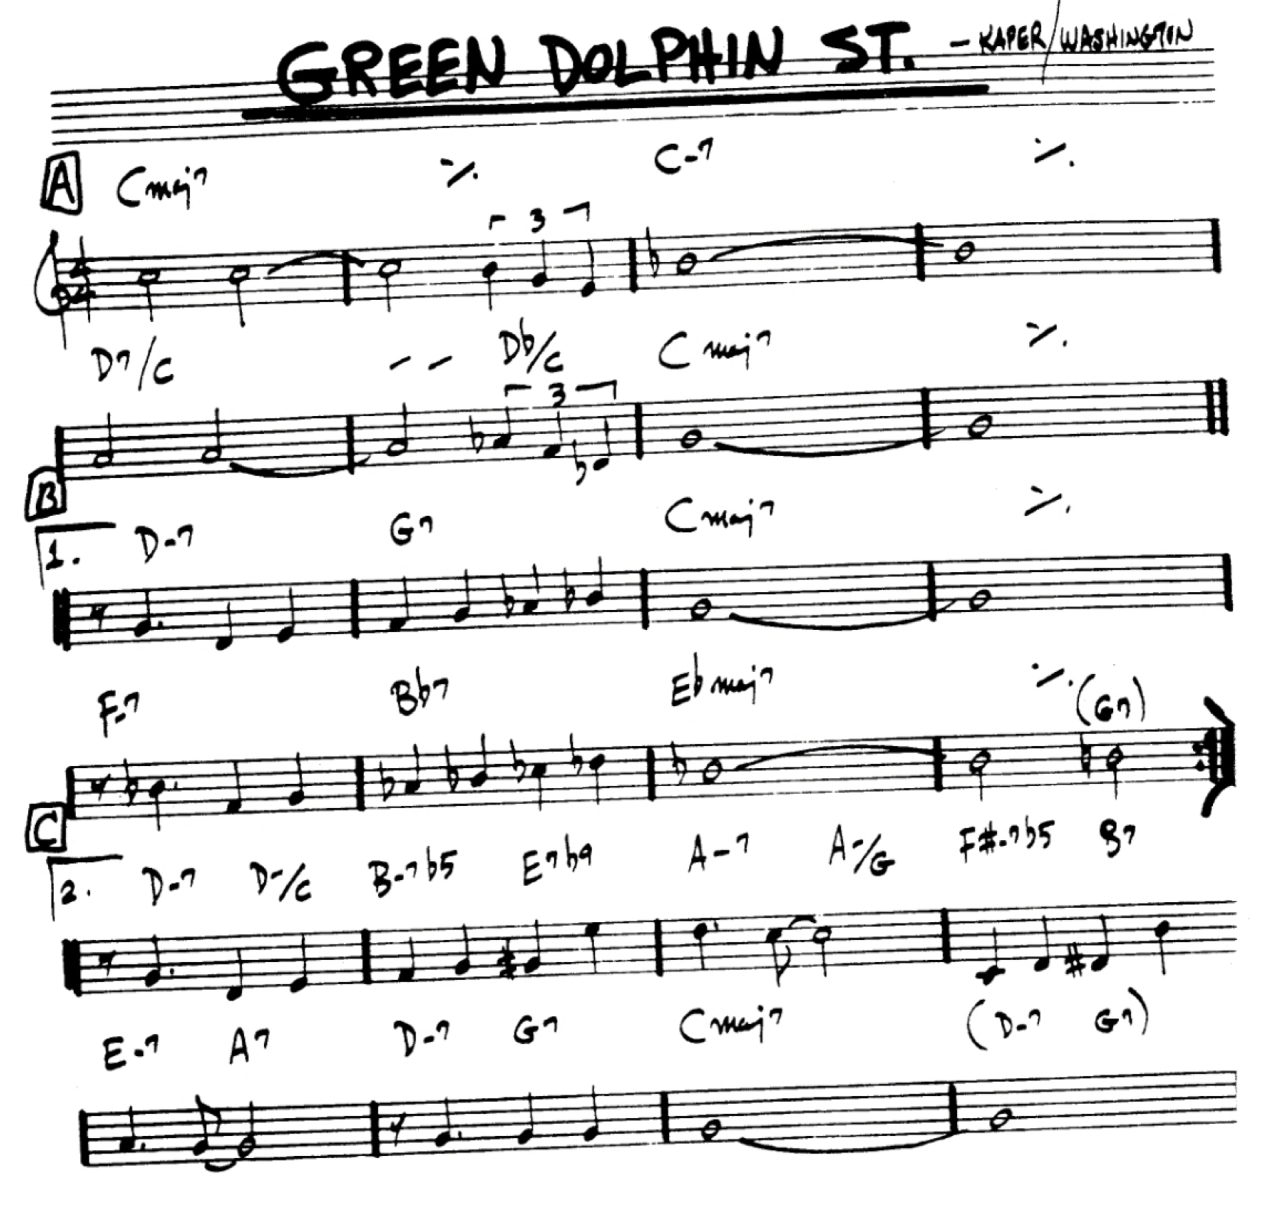 GREEN DOLPHIN ST. - KAPER/WASHINGTON
A Cmaj7 ٪ C-7 ٪
4 4 3
D7/C - - Db/C Cmaj7 ٪
3
B
1. D-7 G7 Cmaj7 ٪
F-7 Bb7 Ebmaj7 ٪ (G7)
C
2. D-7 D-/C B-7b5 E7b9 A-7 A-/G F#-7b5 B7
E-7 A7 D-7 G7 Cmaj7 (D-7 G7)